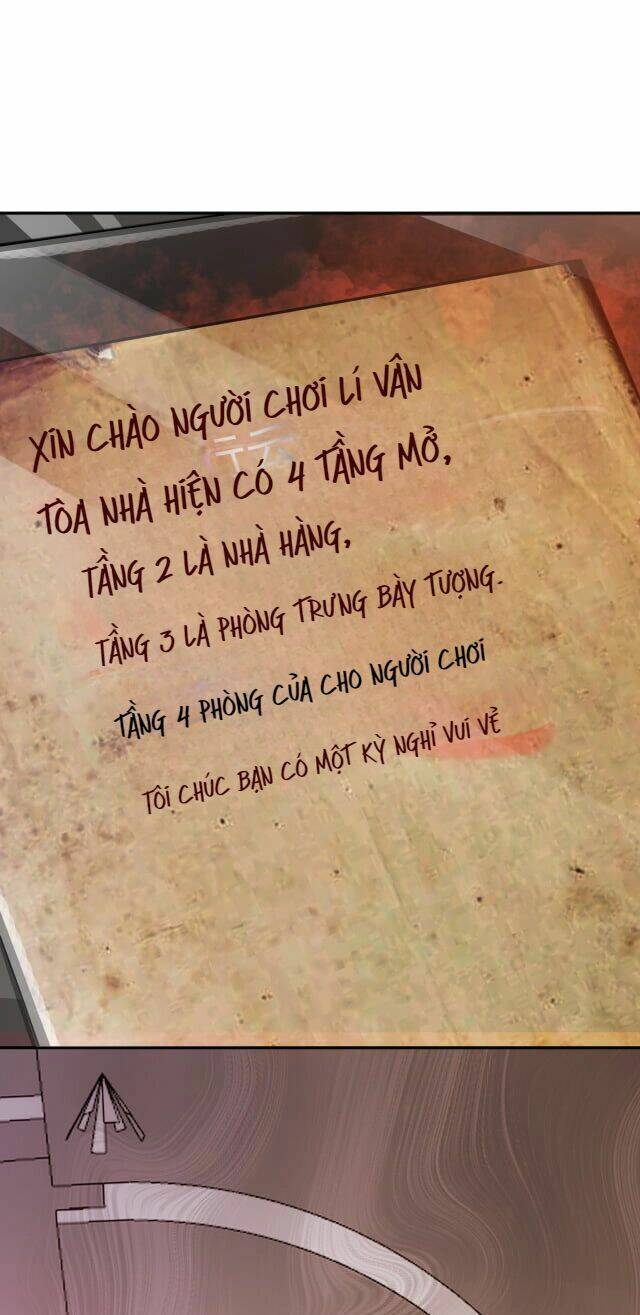 XIN CHÀO NGƯỜI CHƠI LÍ VÂN
TÒA NHÀ HIỆN CÓ 4 TẦNG MỞ,
TẦNG 2 LÀ NHÀ HÀNG,
TẦNG 3 LÀ PHÒNG TRƯNG BÀY TƯỢNG.
TẦNG 4 PHÒNG CỦA CHO NGƯỜI CHƠI
TÔI CHÚC BẠN CÓ MỘT KỲ NGHỈ VUI VẺ